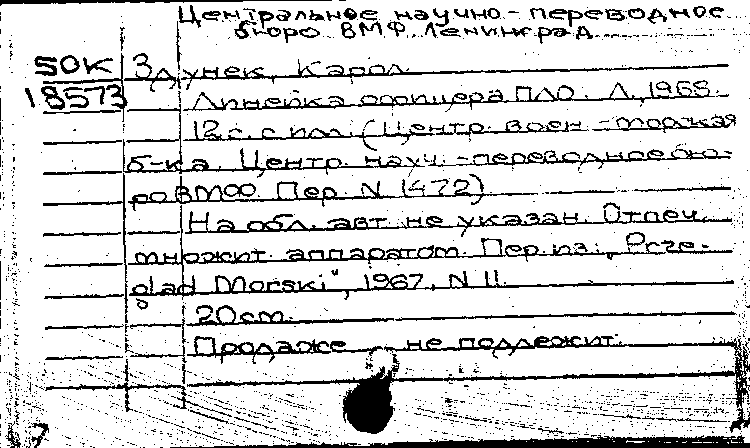 Центральное научно-переводное
бюро ВМФ. Ленинград.
50К Здунек, Кароль
18573 Линейка офицера ПЛО. Л., 1968.
12 с. с ил. (Центр. воен.-морская
б-ка. Центр. науч.-переводное бю-
ро ВМФ. Пер. N 1472)
На обл. авт. не указан. Отпеч.
множит. аппаратом. Пер. из: „Prze-
glad Morski", 1967, N 11.
20 см.
Продаже не подлежит.